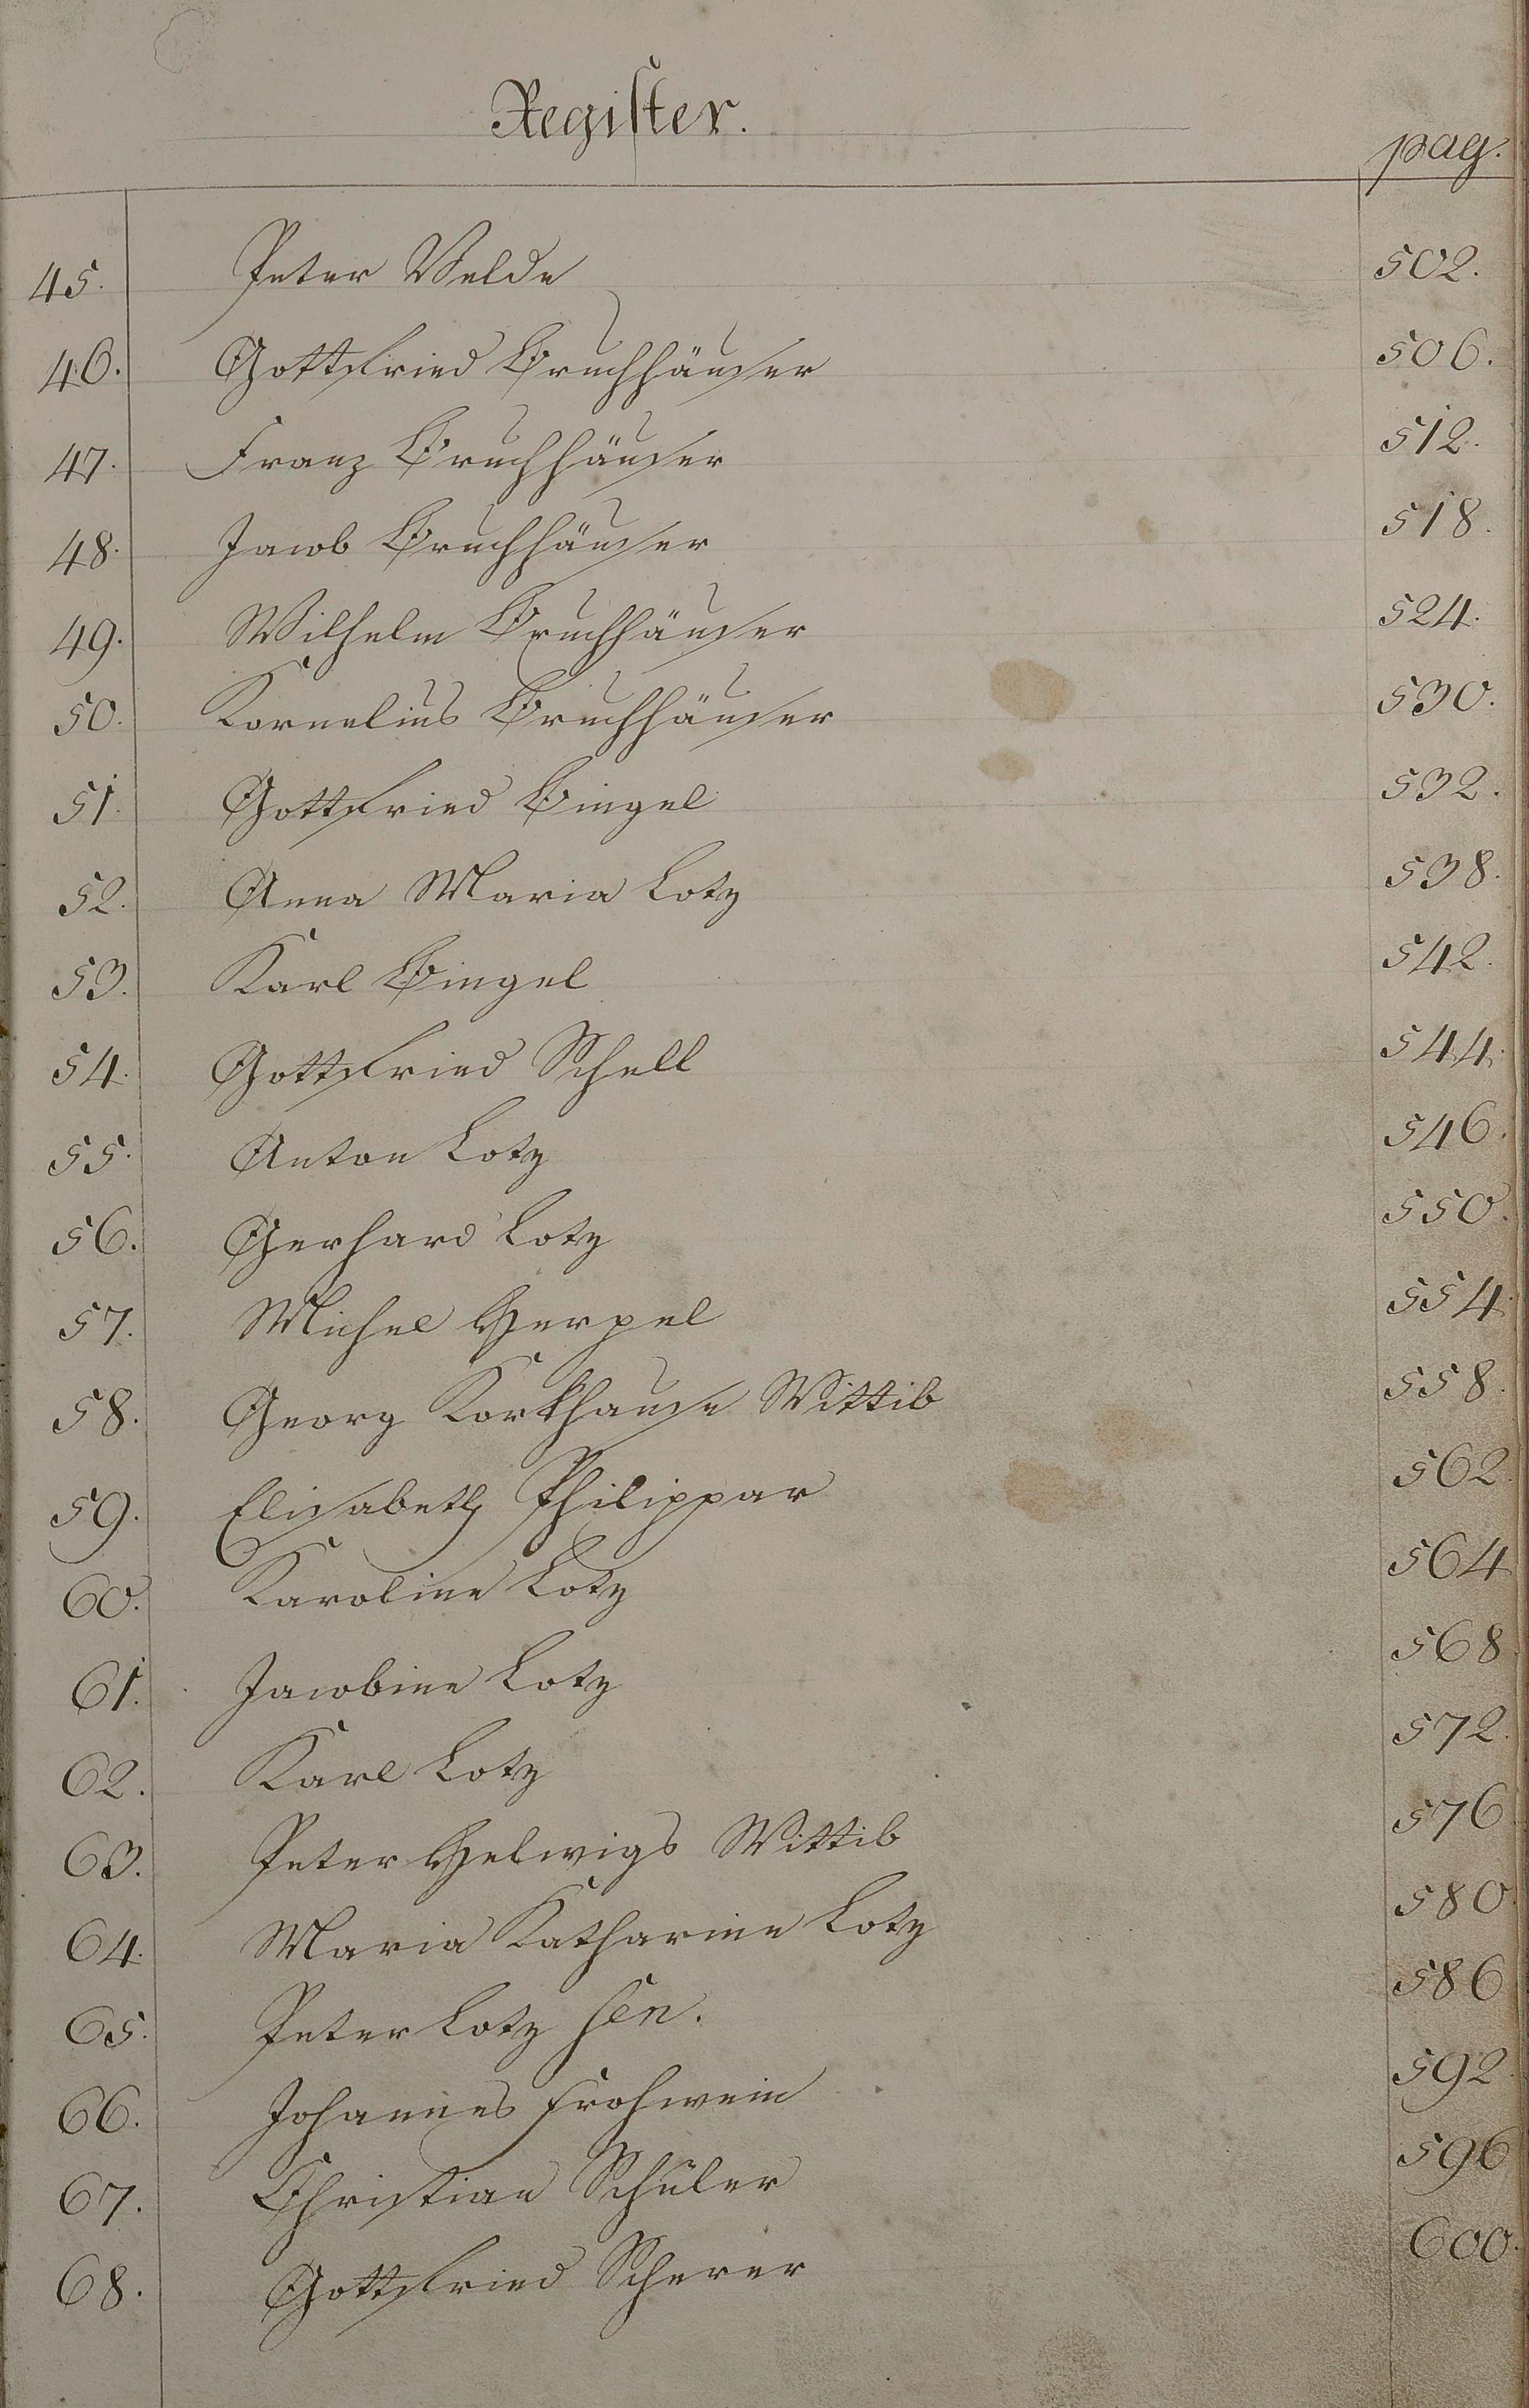 Register.
pag.
45. Peter Velde 502.
46. Gottfried Bruchhäuser 506.
47. Franz Bruchhäuser 512.
48. Jacob Bruchhäuser 518.
49. Wilhelm Bruchhäuser 524.
50. Kornelius Bruchhäuser 530.
51. Gottfried Bingel 532.
52. Anna Maria Lotz 538.
53. Karl Bingel 542.
54. Gottfried Schell 544.
55. Anton Lotz 546.
56. Gerhard Lotz 550.
57. Michel Herpel 554.
58. Georg Korkhause Wittib 558.
59. Elisabeth Philippar 562.
60. Karoline Lotz 564
61. Jacobine Lotz 568
62. Karl Lotz 572.
63. Peter Helwigs Wittib 576
64. Maria Katharine Lotz 580
65. Peter Lotz sen. 586
66. Johannes Frohwein 592
67. Christian Schüler 596
68. Gottfried Scherer 600.